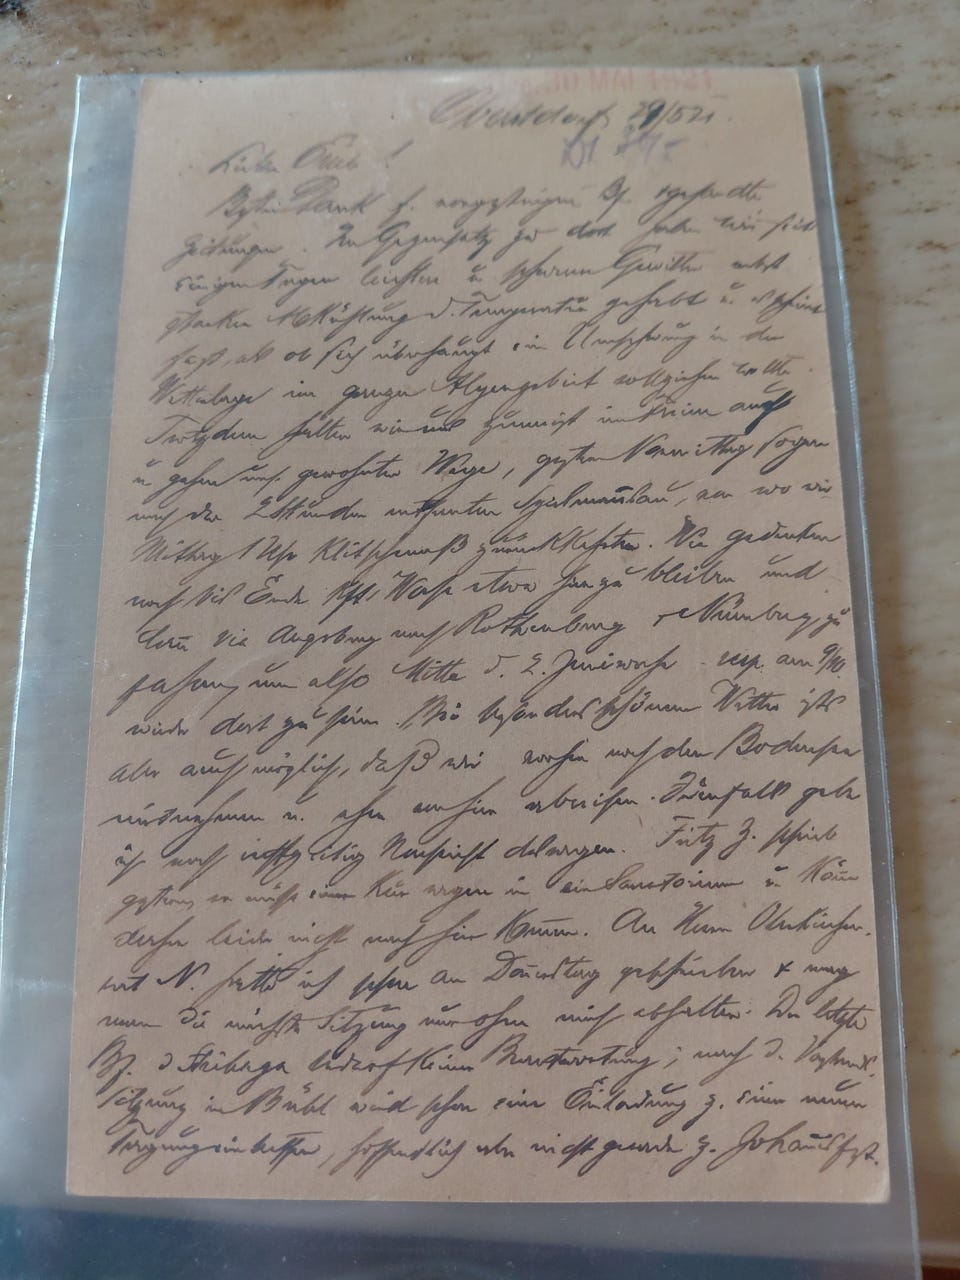 30 MAI 1921
Oberstdorf 29/5 21.
Besten Dank f. vorgestrigen Bf. & gesandte
Zeitungen. Im Gegensatz zu dort haben wir seit
einigen Tagen leichten u schweren Gewitter nebst
starken Abkühlung d. Temperatur gehabt u. es scheint
fast, als ob sich überhaupt ein Umschwung in der
Wetterlage im ganzen Alpengebiet vollziehen wollte.
Trotzdem halten wir uns zumeist im Freien auf
u gehen uns. gewohnten Wege, gestern Vormittag sogar
nach der 2 Stunden entfernten Spielmannsau, von wo wir
Mittag 1 Uhr klitschnaß zurückkehrten. Wir gedenken
noch bis Ende Woche etwa hier zu bleiben und
dann via Augsburg nach Rothenburg & Nürnberg zu
fahren, um also Mitte d. 2. Juniwoche resp. am 9/10.
wieder dort zu sein. Bei besonders schönem Wetter ist's
aber auch möglich, daß wir vorher noch den Bodensee
mitnehmen u. eher von hier abreisen. Jedenfalls gebe
ich noch rechtzeitig Nachricht deswegen. Fritz Z. schrieb
gestern, er müsse einer Kur wegen in ein Sanatorium u könne
daher leider nicht nach hier kommen. An Herrn Oberkirchen-
rat N. hatte ich schon am Donnerstag geschrieben & mag
man die nächste Sitzung nur ohne mich abhalten. Der letzte
Bf. d bedarf keiner Beantwortung; nach d. Vorstands-
sitzung in Bühl wird schon eine Einladung z. einer neuen
Tagung eintreffen, hoffentlich aber nicht gerade z. Johannisfest.